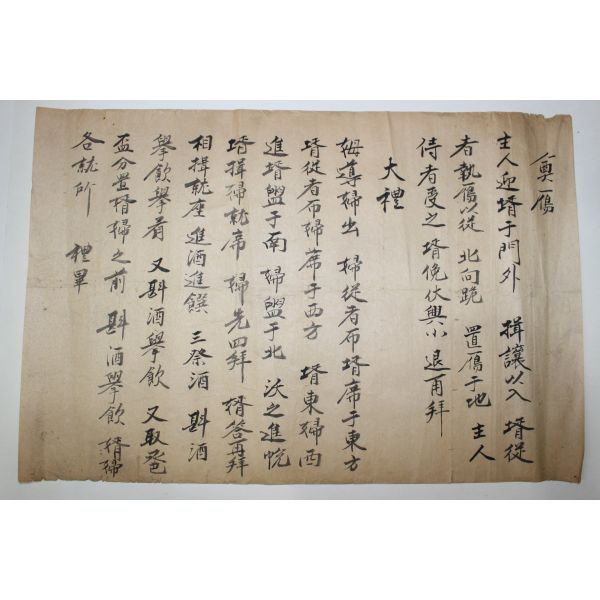 奠鴈
主人迎壻于門外 揖讓以入 壻從
者執鴈以從 北向跪 置鴈于地 主人
侍者受之 壻俛伏興小退再拜
大禮
姆導婦出 婦從者布壻席于東方
壻從者布婦席于西方 壻東婦西
進壻盥于南 婦盥于北 沃之進帨
壻揖婦就席 婦先四拜 壻答再拜
相揖就座 進酒進饌 三祭酒 斟酒
擧飮擧肴 又斟酒擧飮 又取巹
盃分置壻婦之前 斟酒擧飮 壻婦
各就所 禮畢